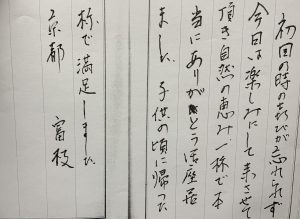 初回の時の喜びが忘れれず
今日は楽しみにして来させて
頂き自然の恵み一杯で本
当にありがとう御座居
ました 子供の頃に帰った
様で満足しました
京都 富枝